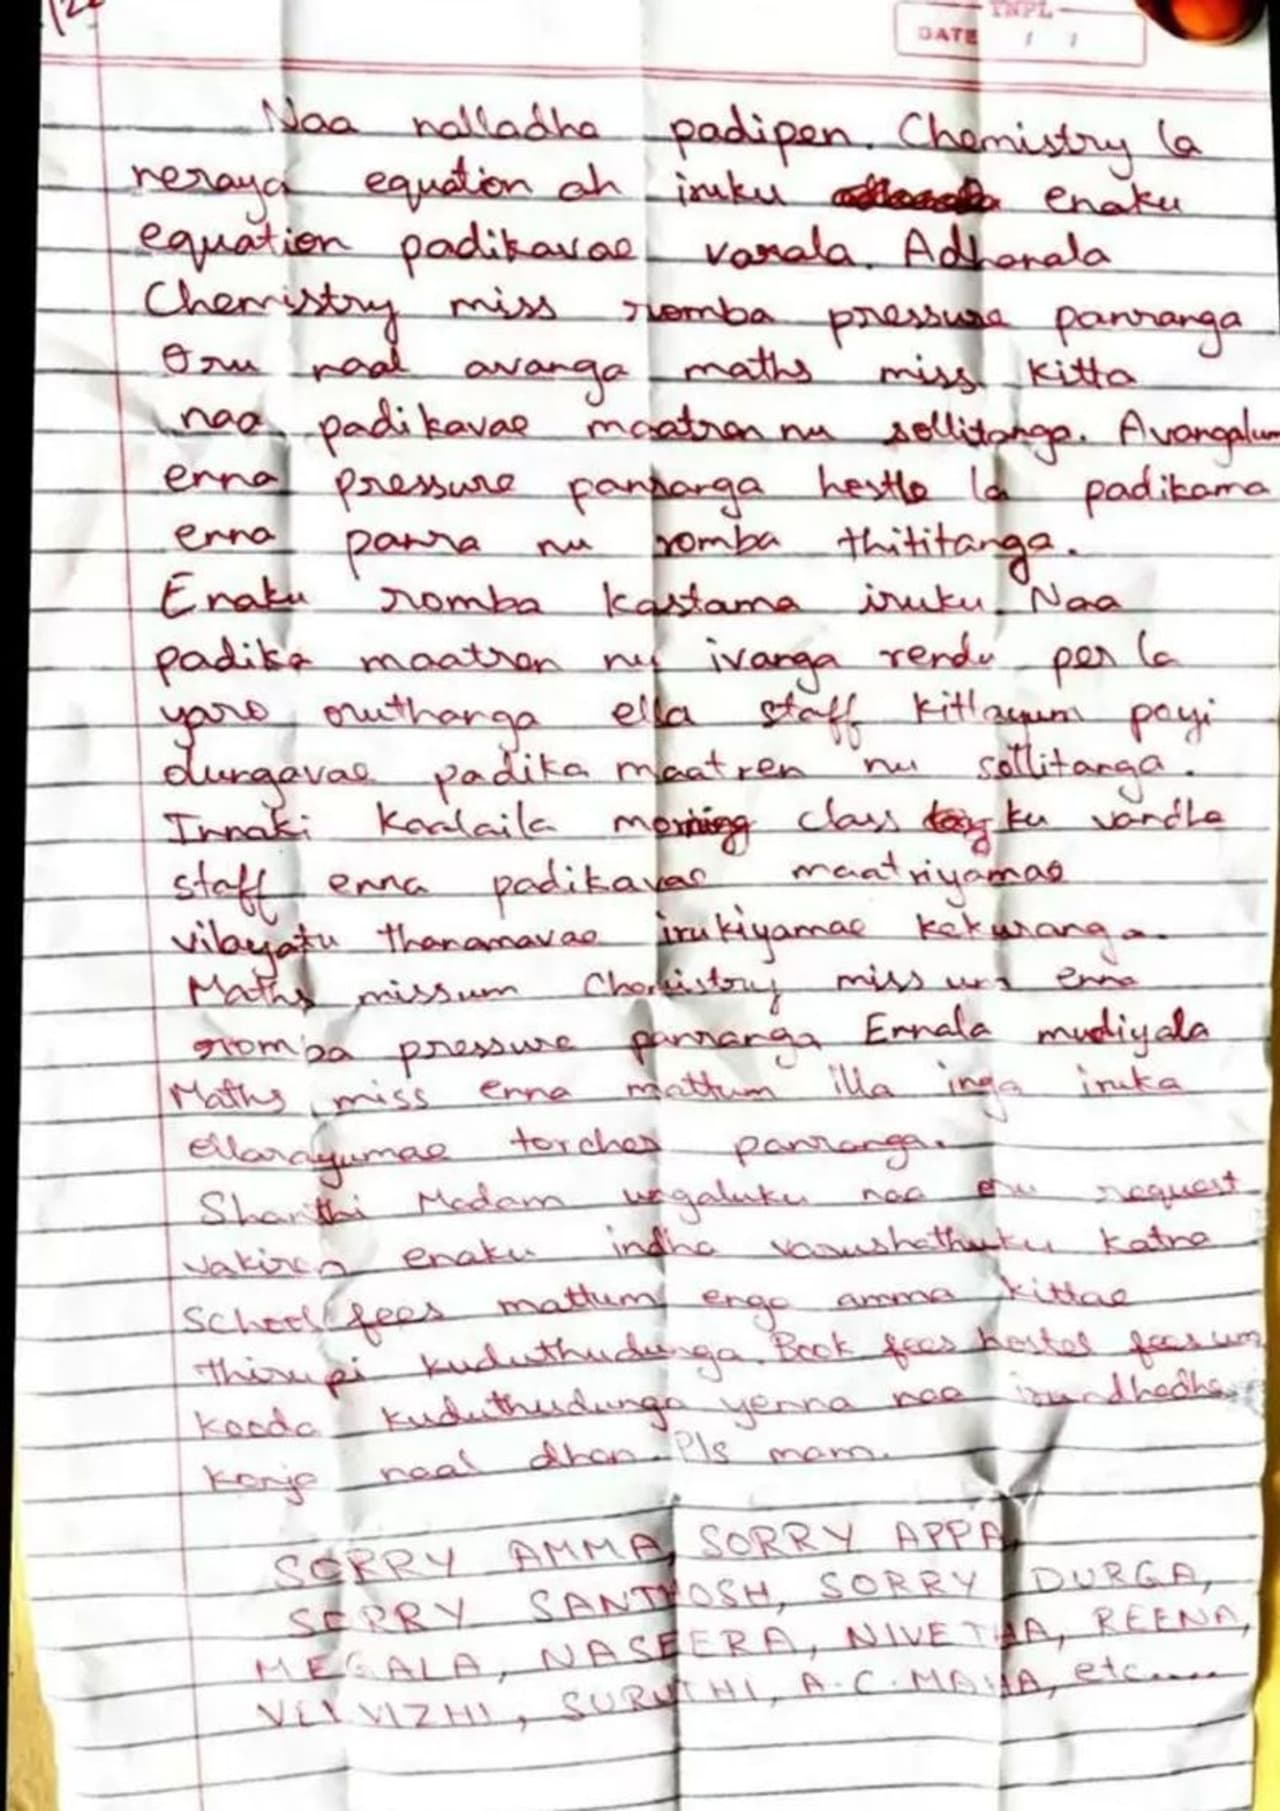 TNPL
DATE / /
Naa nalladha padipen. Chemistry la
neraya equation ah iruku enaku
equation padikavae varala. Adhanala
Chemistry miss romba pressure panranga
Oru naal avanga maths miss kitta
naa padikavae maatran nu sollitanga. Avangalum
enna pressure panranga hestle la padikama
enna panra nu romba thititanga.
Enaku romba kastama iruku. Naa
padika maatran nu ivanga rendu per la
yaro orutharga ella staff kitlayum poyi
durgavae padika maatren nu sollitanga.
Innaki kaalaila morning class ku vandha
staff enna padikavae maatriyamae
vilayatu thanamavae irukiyamae kekuranga.
Maths missum Chemistry miss um enna
romba pressure panranga Ennala mudiyala
Maths miss enna mattum illa inga iruka
ellarayumae torcher panranga.
Shanthi Madam ungaluku naa oru request
vakiren enaku indha varushathuku katna
School fees mattum enga amma kittae
thirupi kuduthudunga. Book fees hostel fees um
kooda kuduthudunga yenna naa irundhadhe
konja naal dhan. Pls mam.
SORRY AMMA, SORRY APPA,
SORRY SANTHOSH, SORRY DURGA,
MEGALA, NASEERA, NIVETHA, REENA,
VELVIZHI, SURUTHI, A.C.MAHA, etc.....